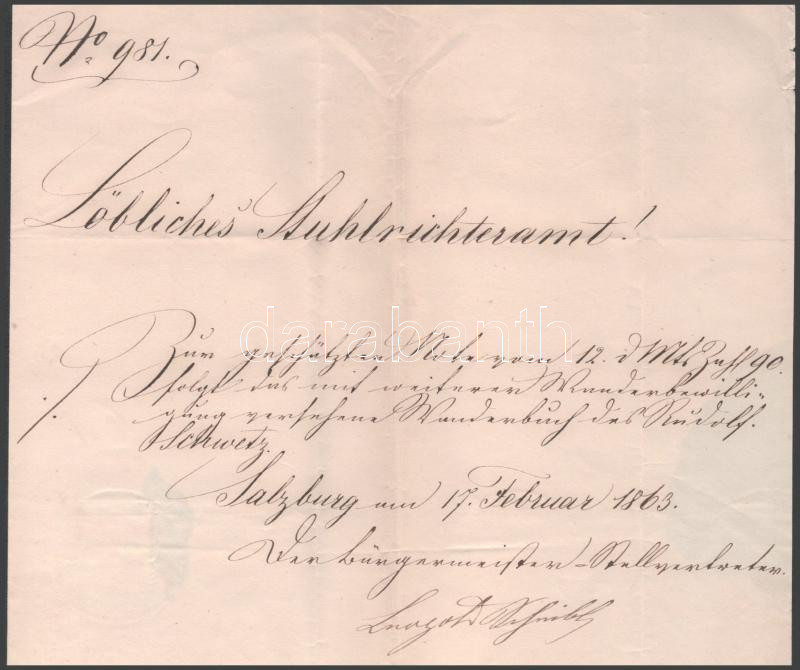 No 981.
Löbliches Stuhlrichteramt!
Zur geschätzten Note vom 12. d Mts Zahl 90.
./. folgt das mit weiterer Wanderbewilli-
gung versehene Wanderbuch des Rudolf
Schwetz.
Salzburg am 17. Februar 1863.
Der Bürgermeister-Stellvertreter.
Leopold Scheibl
darabanth